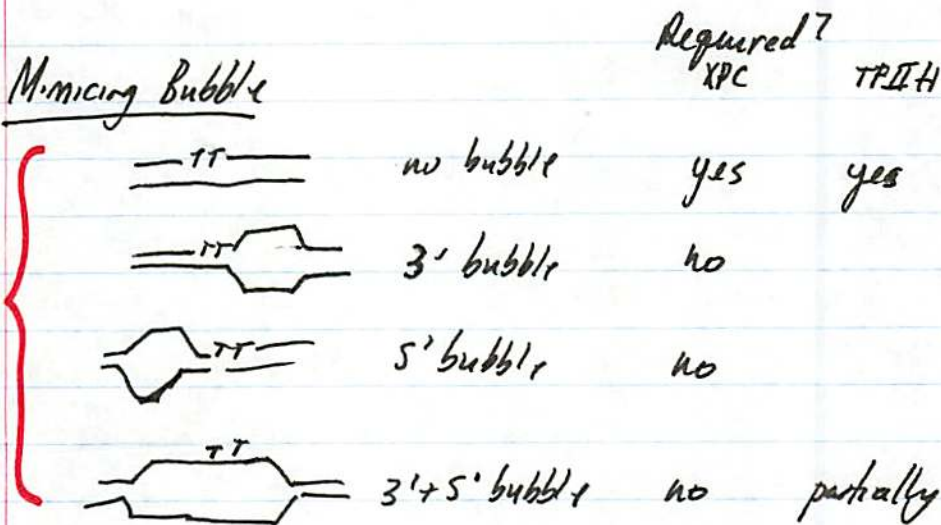 Required?
Mimicing Bubble XPC TFIIH
TT no bubble yes yes
TT 3' bubble no
TT 5' bubble no
TT 3'+5' bubble no partially